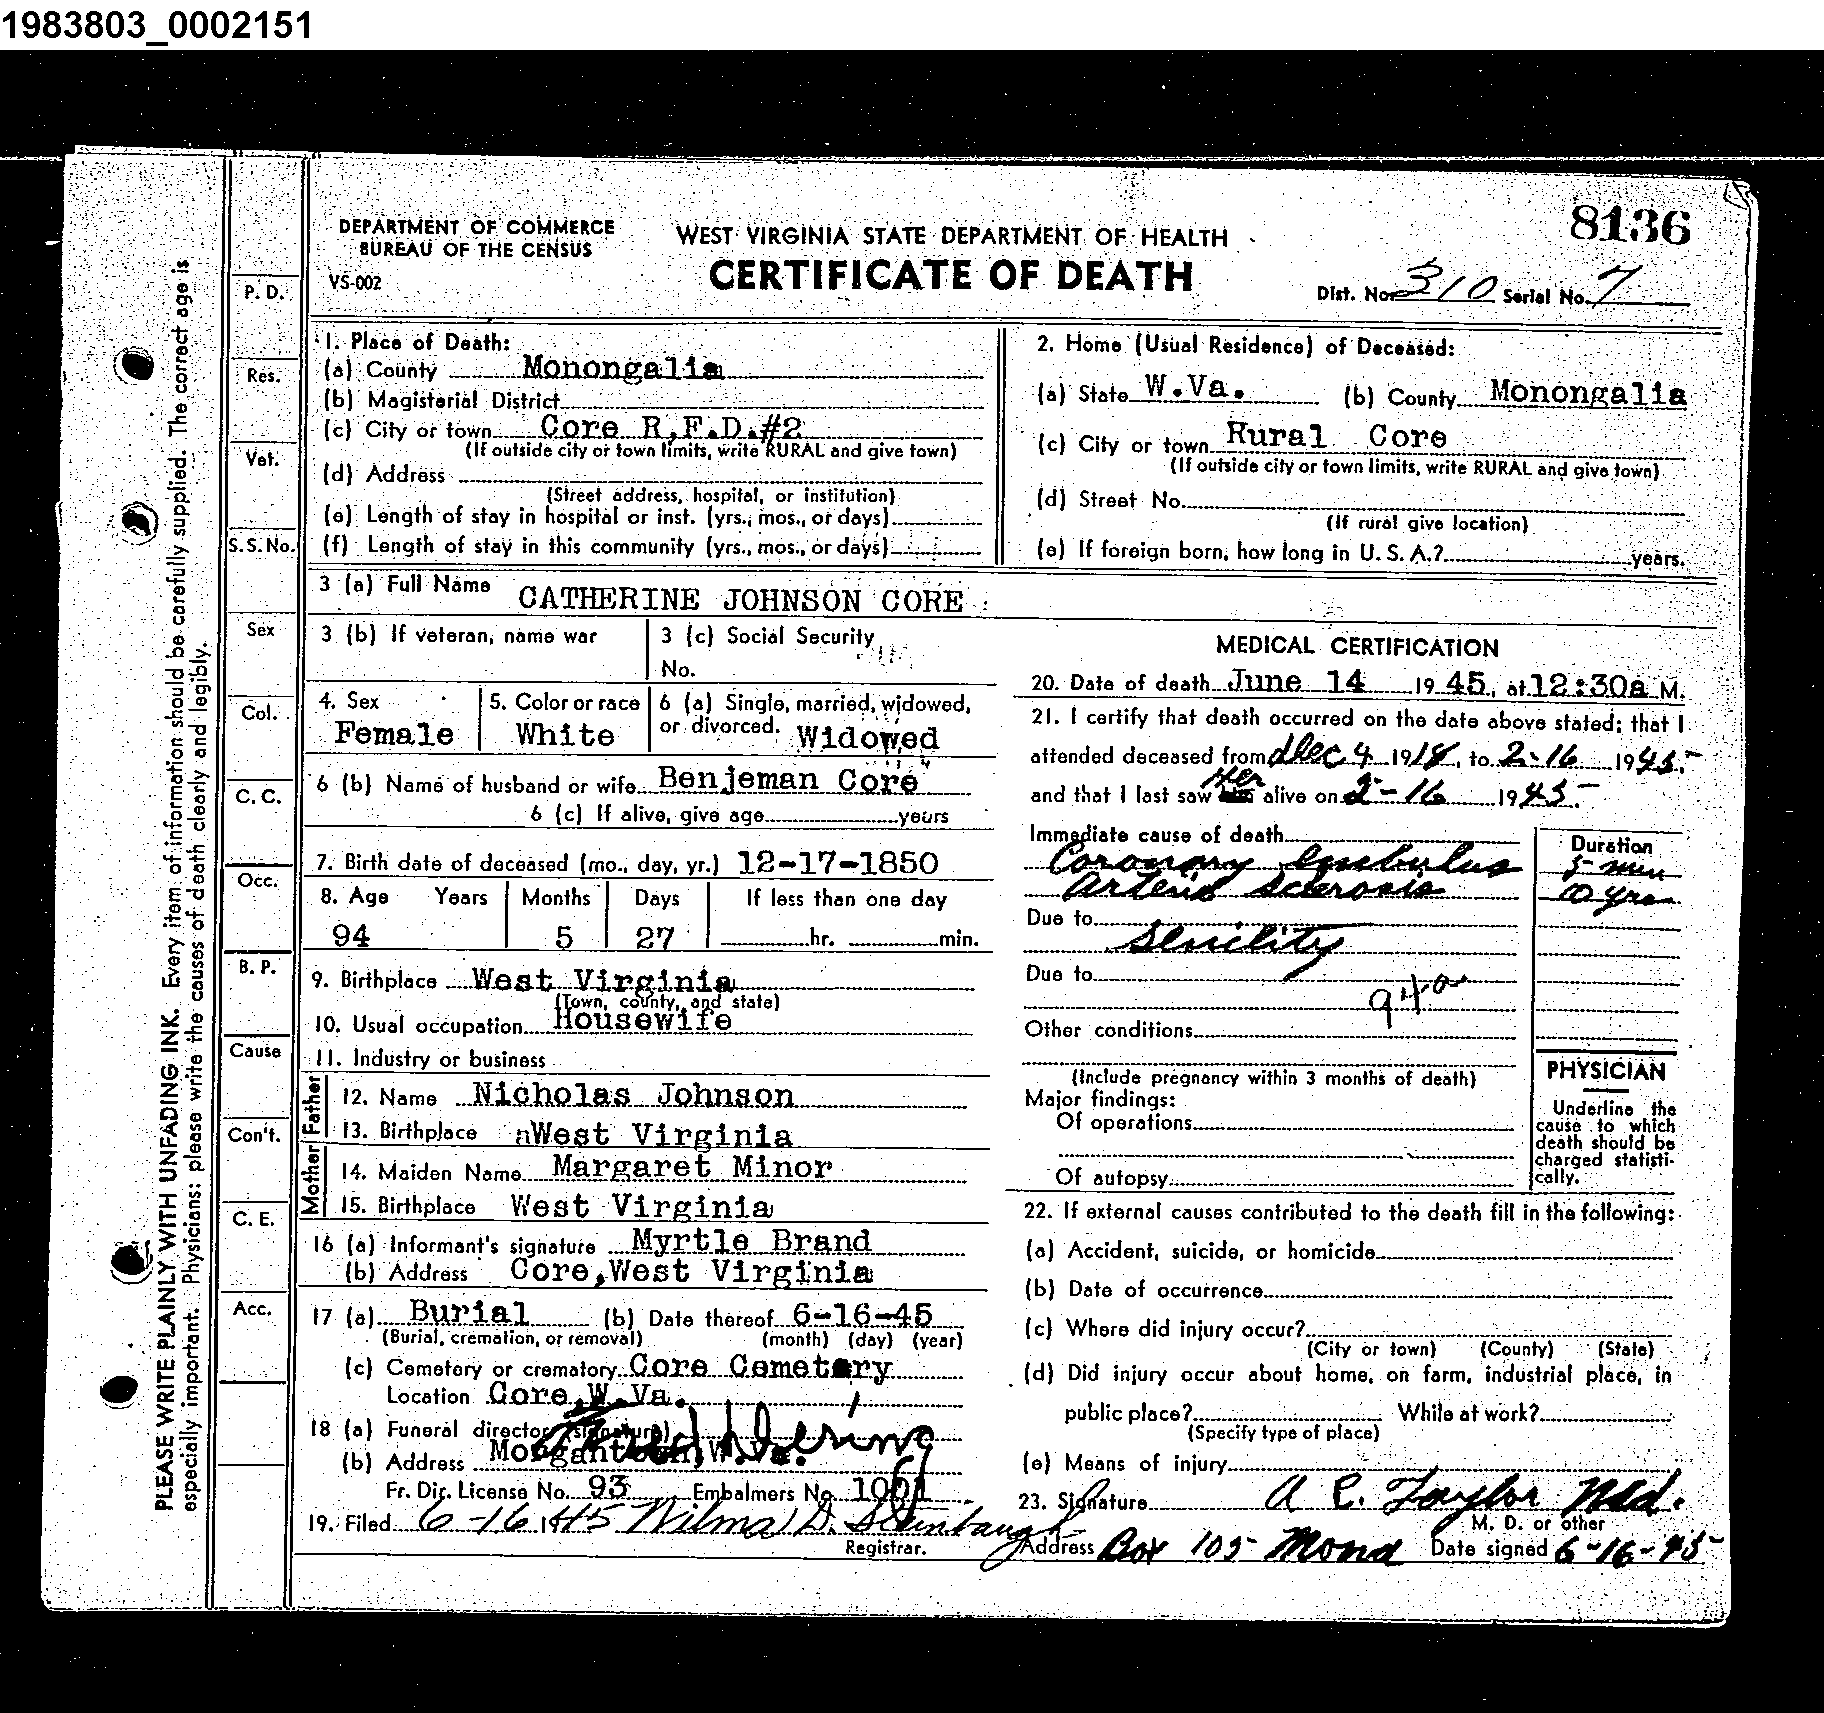 1983803_0002151
8136
DEPARTMENT OF COMMERCE
BUREAU OF THE CENSUS
VS-002
WEST VIRGINIA STATE DEPARTMENT OF HEALTH
CERTIFICATE OF DEATH
Dist. No. 310 Serial No. 7
PLEASE WRITE PLAINLY WITH UNFADING INK. Every item of information should be carefully supplied. The correct age is
especially important. Physicians: please write the causes of death clearly and legibly.
P. D.
Res.
Vet.
S. S. No.
Sex
Col.
C. C.
Occ.
B. P.
Cause
Con't.
C. E.
Acc.
1. Place of Death:
(a) County Monongalia
(b) Magisterial District
(c) City or town Core R.F.D.#2
(If outside city or town limits, write RURAL and give town)
(d) Address
(Street address, hospital, or institution)
(e) Length of stay in hospital or inst. (yrs., mos., or days)
(f) Length of stay in this community (yrs., mos., or days)
2. Home (Usual Residence) of Deceased:
(a) State W.Va. (b) County Monongalia
(c) City or town Rural Core
(If outside city or town limits, write RURAL and give town)
(d) Street No.
(If rural give location)
(e) If foreign born, how long in U. S. A.? years.
3 (a) Full Name CATHERINE JOHNSON CORE
3 (b) If veteran, name war
3 (c) Social Security
No.
4. Sex Female
5. Color or race White
6 (a) Single, married, widowed,
or divorced. Widowed
6 (b) Name of husband or wife Benjeman Core
6 (c) If alive, give age years
7. Birth date of deceased (mo., day, yr.) 12-17-1850
8. Age Years Months Days If less than one day
94 5 27 hr. min.
9. Birthplace West Virginia
(Town, county, and state)
10. Usual occupation Housewife
11. Industry or business
Father
12. Name Nicholas Johnson
13. Birthplace West Virginia
Mother
14. Maiden Name Margaret Minor
15. Birthplace West Virginia
16 (a) Informant's signature Myrtle Brand
(b) Address Core, West Virginia
17 (a) Burial (b) Date thereof 6-16-45
(Burial, cremation, or removal) (month) (day) (year)
(c) Cemetery or crematory Core Cemetery
Location Core, W.Va.
18 (a) Funeral director (signature)
(b) Address Morgantown, W.Va.
Fr. Dir. License No. 93 Embalmers No. 1061
19. Filed 6-16 1945 Wilma D.
Registrar.
MEDICAL CERTIFICATION
20. Date of death June 14 1945, at 12:30a M.
21. I certify that death occurred on the date above stated; that I
attended deceased from Dec 4 1918, to 2-16 1945
and that I last saw her alive on 2-16 1945
Immediate cause of death
Duration
Coronary embulus 5 min
Arterio sclerosis 10 yrs
Due to
Senility
Due to
94a
Other conditions
(Include pregnancy within 3 months of death)
Major findings:
Of operations
Of autopsy
PHYSICIAN
Underline the
cause to which
death should be
charged statisti-
cally.
22. If external causes contributed to the death fill in the following:
(a) Accident, suicide, or homicide
(b) Date of occurrence
(c) Where did injury occur?
(City or town) (County) (State)
(d) Did injury occur about home, on farm, industrial place, in
public place? While at work?
(Specify type of place)
(e) Means of injury
23. Signature A C. Taylor Md.
M. D. or other
Address Box 105 Mona Date signed 6-16-45